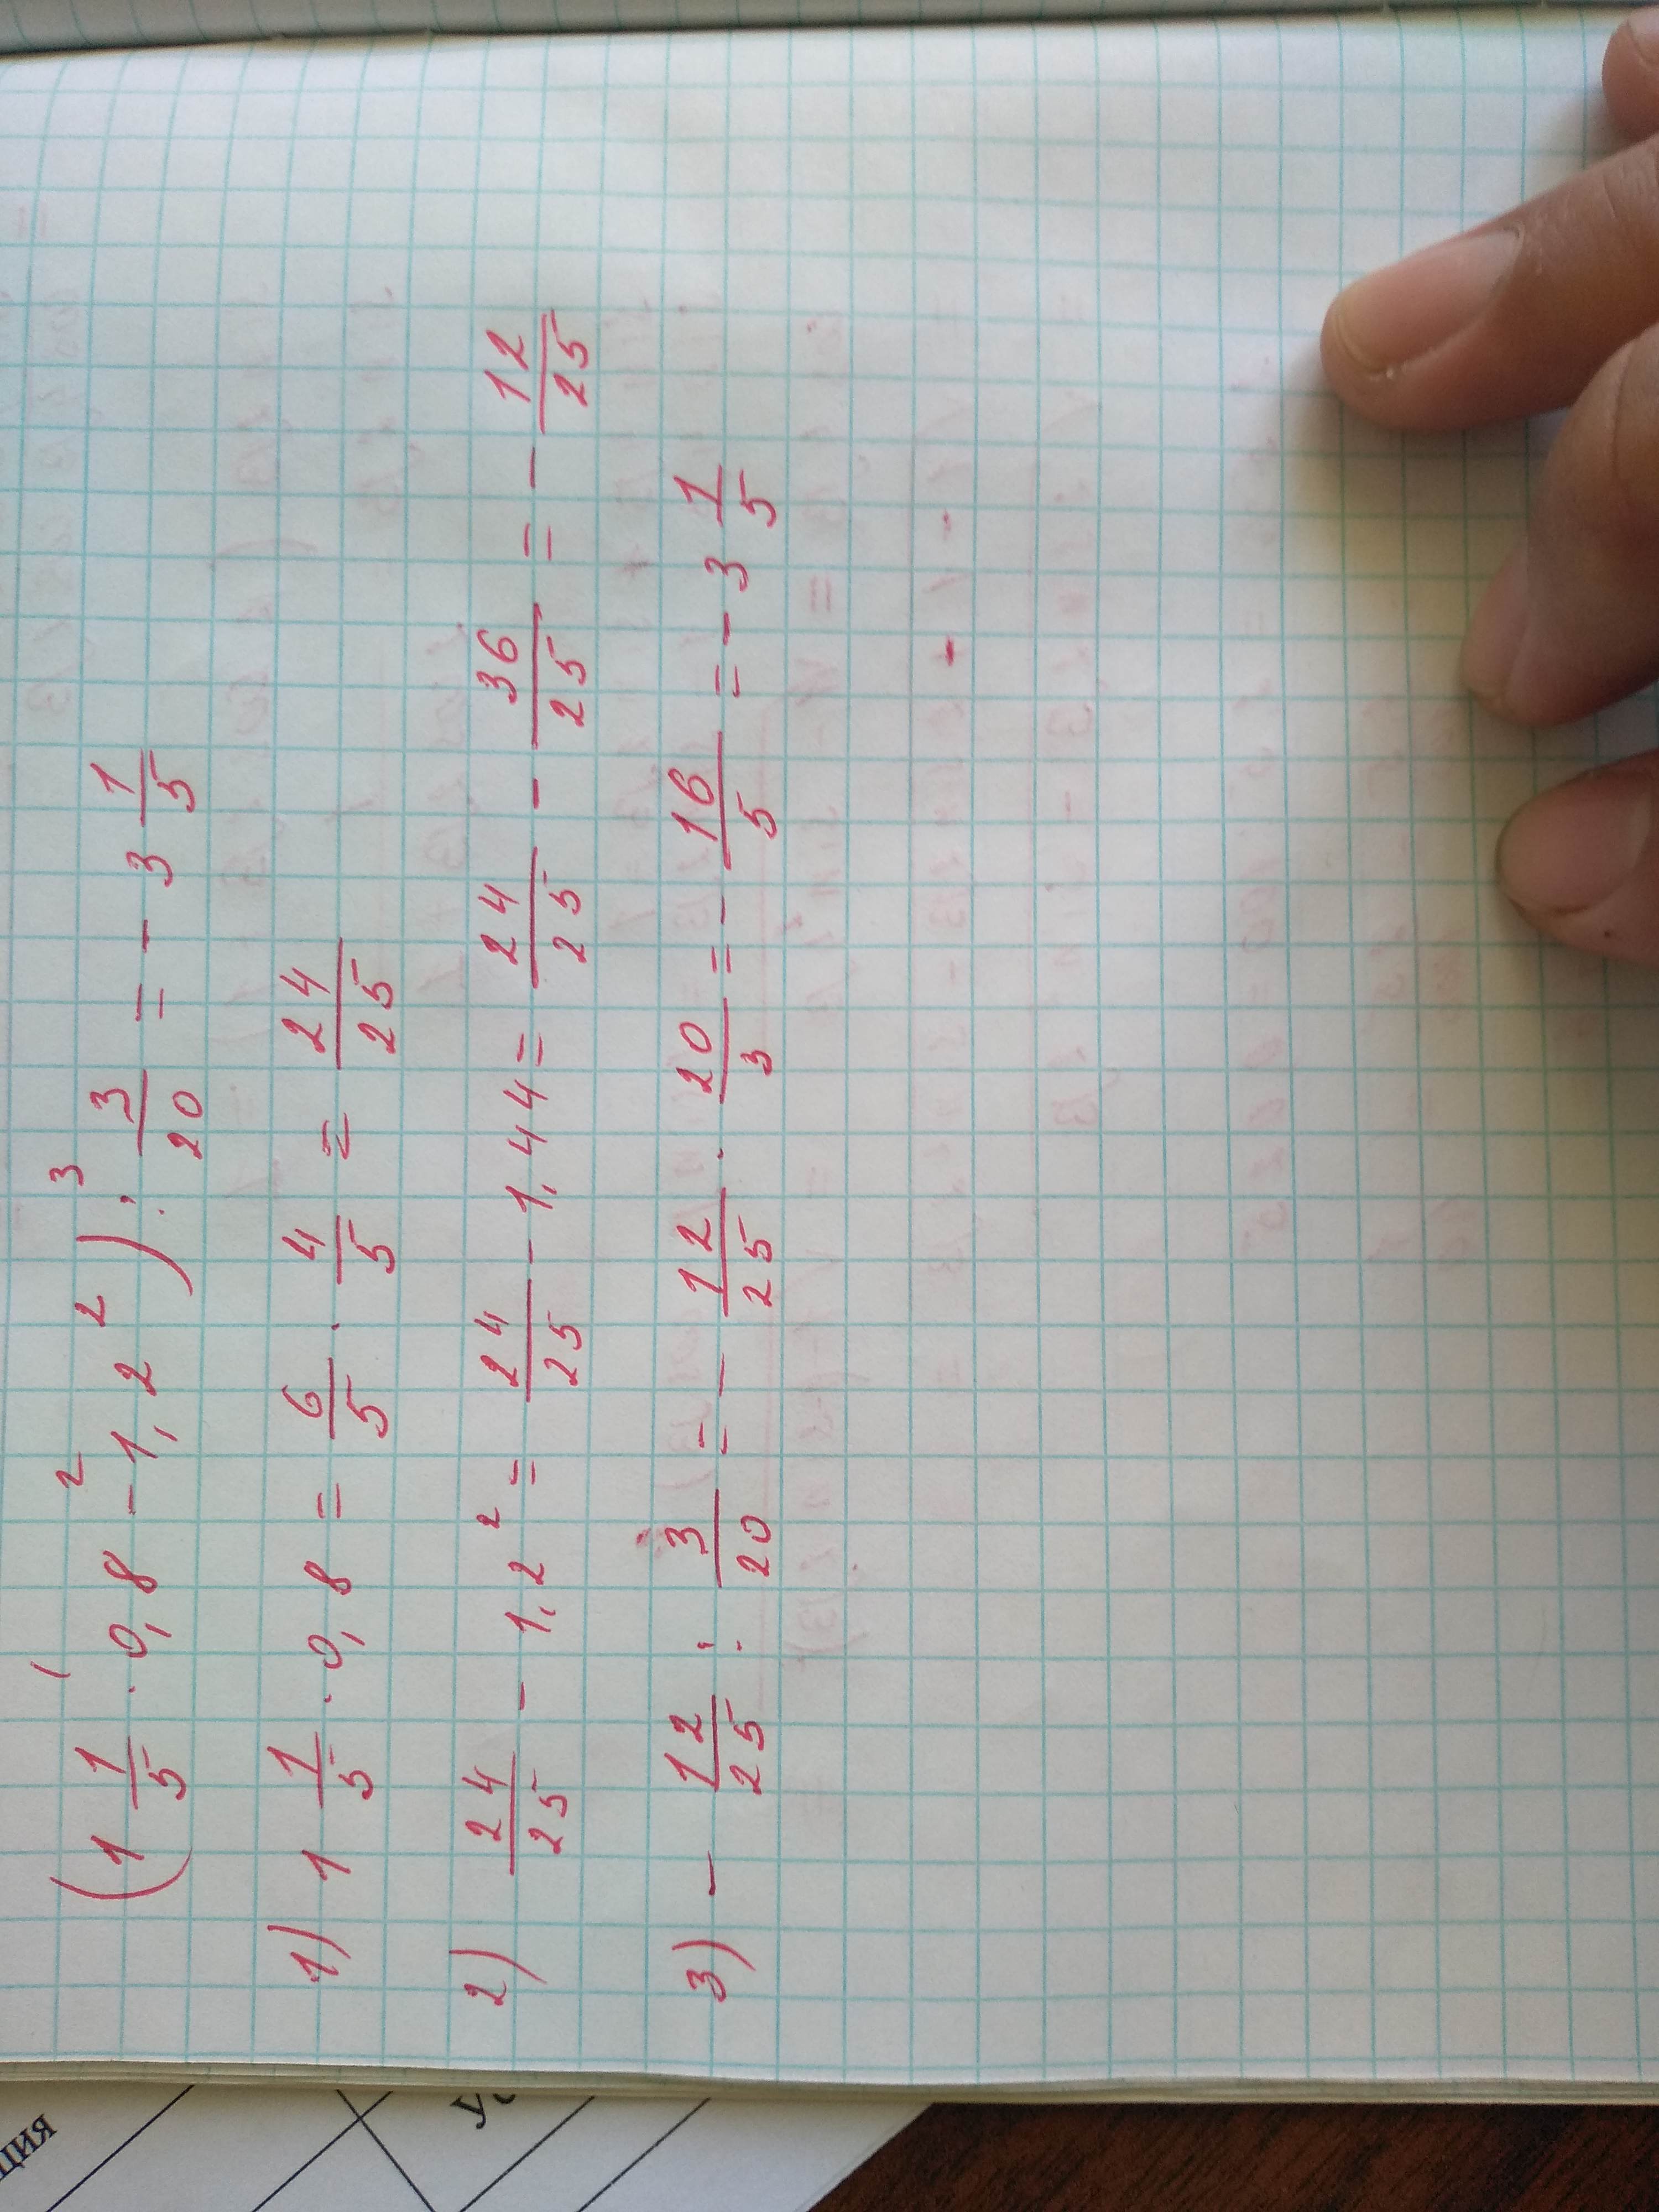 (1 1/5 · 0,8 - 1,2²) : 3/20 = - 3 1/5
1 2 3
1) 1 1/5 · 0,8 = 6/5 · 4/5 = 24/25
2) 24/25 - 1,2² = 24/25 - 1,44 = 24/25 - 36/25 = - 12/25
3) - 12/25 : 3/20 = - 12/25 · 20/3 = - 16/5 = - 3 1/5
ция